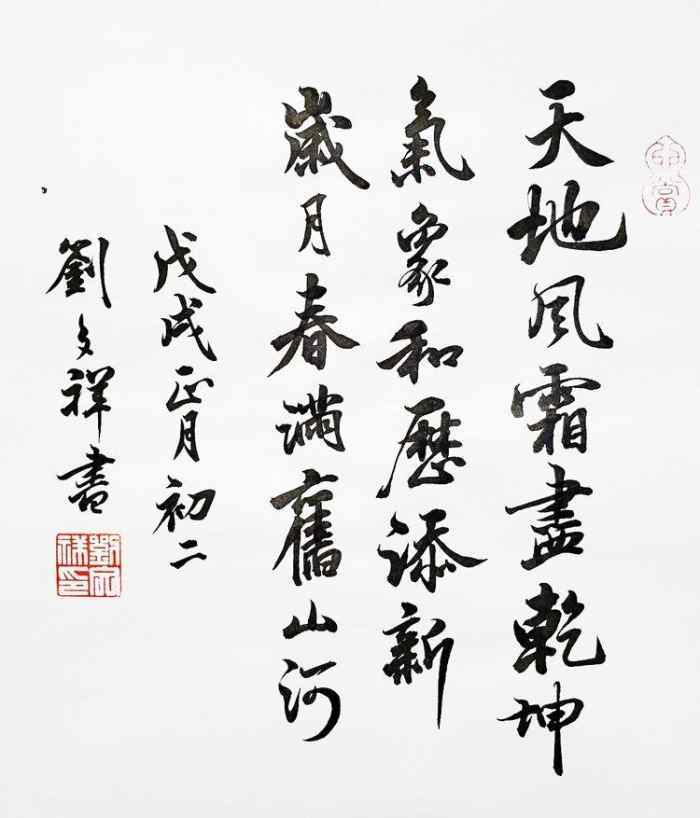 天地風霜盡乾坤
氣象和歷添新
歲月春滿舊山河
戊戌正月初二
劉文祥書
劉文祥印